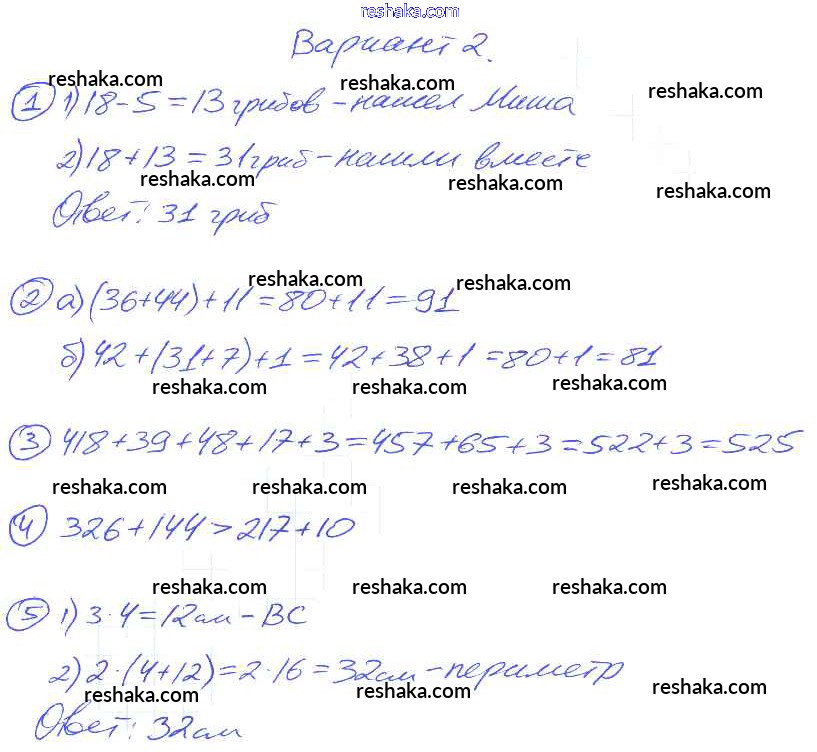 reshaka.com
Вариант 2.
reshaka.com reshaka.com reshaka.com
① 1) 18-5=13 грибов - нашел Миша
2) 18+13=31 гриб - нашли вместе
reshaka.com reshaka.com reshaka.com
Ответ: 31 гриб
reshaka.com reshaka.com
② а) (36+44)+11=80+11=91
б) 42+(31+7)+1=42+38+1=80+1=81
reshaka.com reshaka.com reshaka.com
③ 418+39+48+17+3=457+65+3=522+3=525
reshaka.com reshaka.com reshaka.com reshaka.com
④ 326+144>217+10
reshaka.com reshaka.com reshaka.com
⑤ 1) 3·4=12см - BC
2) 2·(4+12)=2·16=32см - периметр
reshaka.com reshaka.com reshaka.com
Ответ: 32см